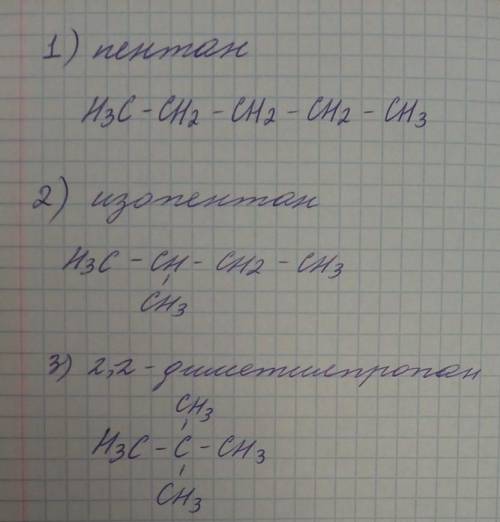 1) пентан
H3C - CH2 - CH2 - CH2 - CH3
2) изопентан
H3C - CH - CH2 - CH3
CH3
3) 2,2-диметилпропан
CH3
H3C - C - CH3
CH3